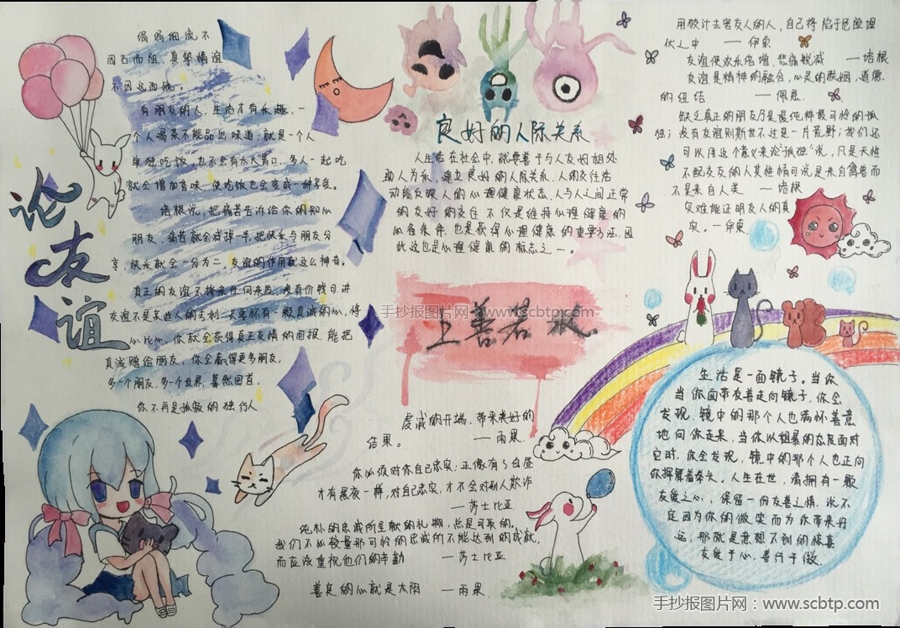 论友谊
偶偶细流不
因石而阻,真挚情谊
不因远而疏。
有朋友的人,生活才有乐趣,一
个人喝茶不能品出味道,就是一个人
单独吃饭,也不会有太大胃口,多人一起吃
就会增加香味,使吃饭也会变成一种享受。
培根说:把痛苦告诉给你的知心
朋友,痛苦就会减掉一半,把快乐与朋友分
享,快乐就会一分为二,友谊的作用就这么神奇。
友谊不是某些人的专利,只要你有一般真诚的心,将
心比心,你就会获得真正友情的回报,能把
真诚赠给朋友,你会赢得更多朋友,
多一个朋友,多一个世界,蓦然回首,
你不再是孤寂的独行人
良好的人际关系
人生活在社会中,就要善于与人友好相处
助人为乐,建立良好的人际关系,人的交往活
动能反映人的心理健康状态,人与人之间正常
的友好的交往不仅是维持心理健康的
必备条件,也是获得心理健康的重要方法,因
此这也是心理健康的标志之一。
上善若水
手抄报图片网:www.scbtp.com
虔诚的开端,带来美好的
结果。 —雨果
你必须对你自己忠实;正像有了白昼
才有黑夜一样,对自己忠实,才不会对别人欺诈
—莎士比亚
纯朴的忠诚所呈献的礼物,总是可取的。
我们不必较量那可怜的忠诚所不能达到的成就,
而应该重视他们的辛勤 —莎士比亚
善良的心就是太阳 —雨果
用狡计去害友人的人,自己将陷于危险埋
伏之中 —伊索
友谊使欢乐倍增,悲痛锐减 —培根
的纽结 —佩恩
缺乏真正的朋友乃是最纯粹最可怜的孤
独;没有友谊则斯世不过是一片荒野;我们还
可以用这个意义来论“孤独”说,凡是天性
不配交友的人其性情可说是来自禽兽而
不是来自人类 —培根
患难能证明友人的真
实。—伊索
生活是一面镜子。当你
当你面带友善走向镜子,你会
发现,镜中的那个人也满怀善意
地向你走来,当你以粗暴的态度面对
它时,你会发现,镜中的那个人也正向
你挥舞着拳头。人生在世,请拥有一般
友爱之心,保留一份友善之情,说不
定因为你的微笑而为你带来好
运,那就是意想不到的惊喜
友爱于心,善行于微
手抄报图片网:www.scbtp.com